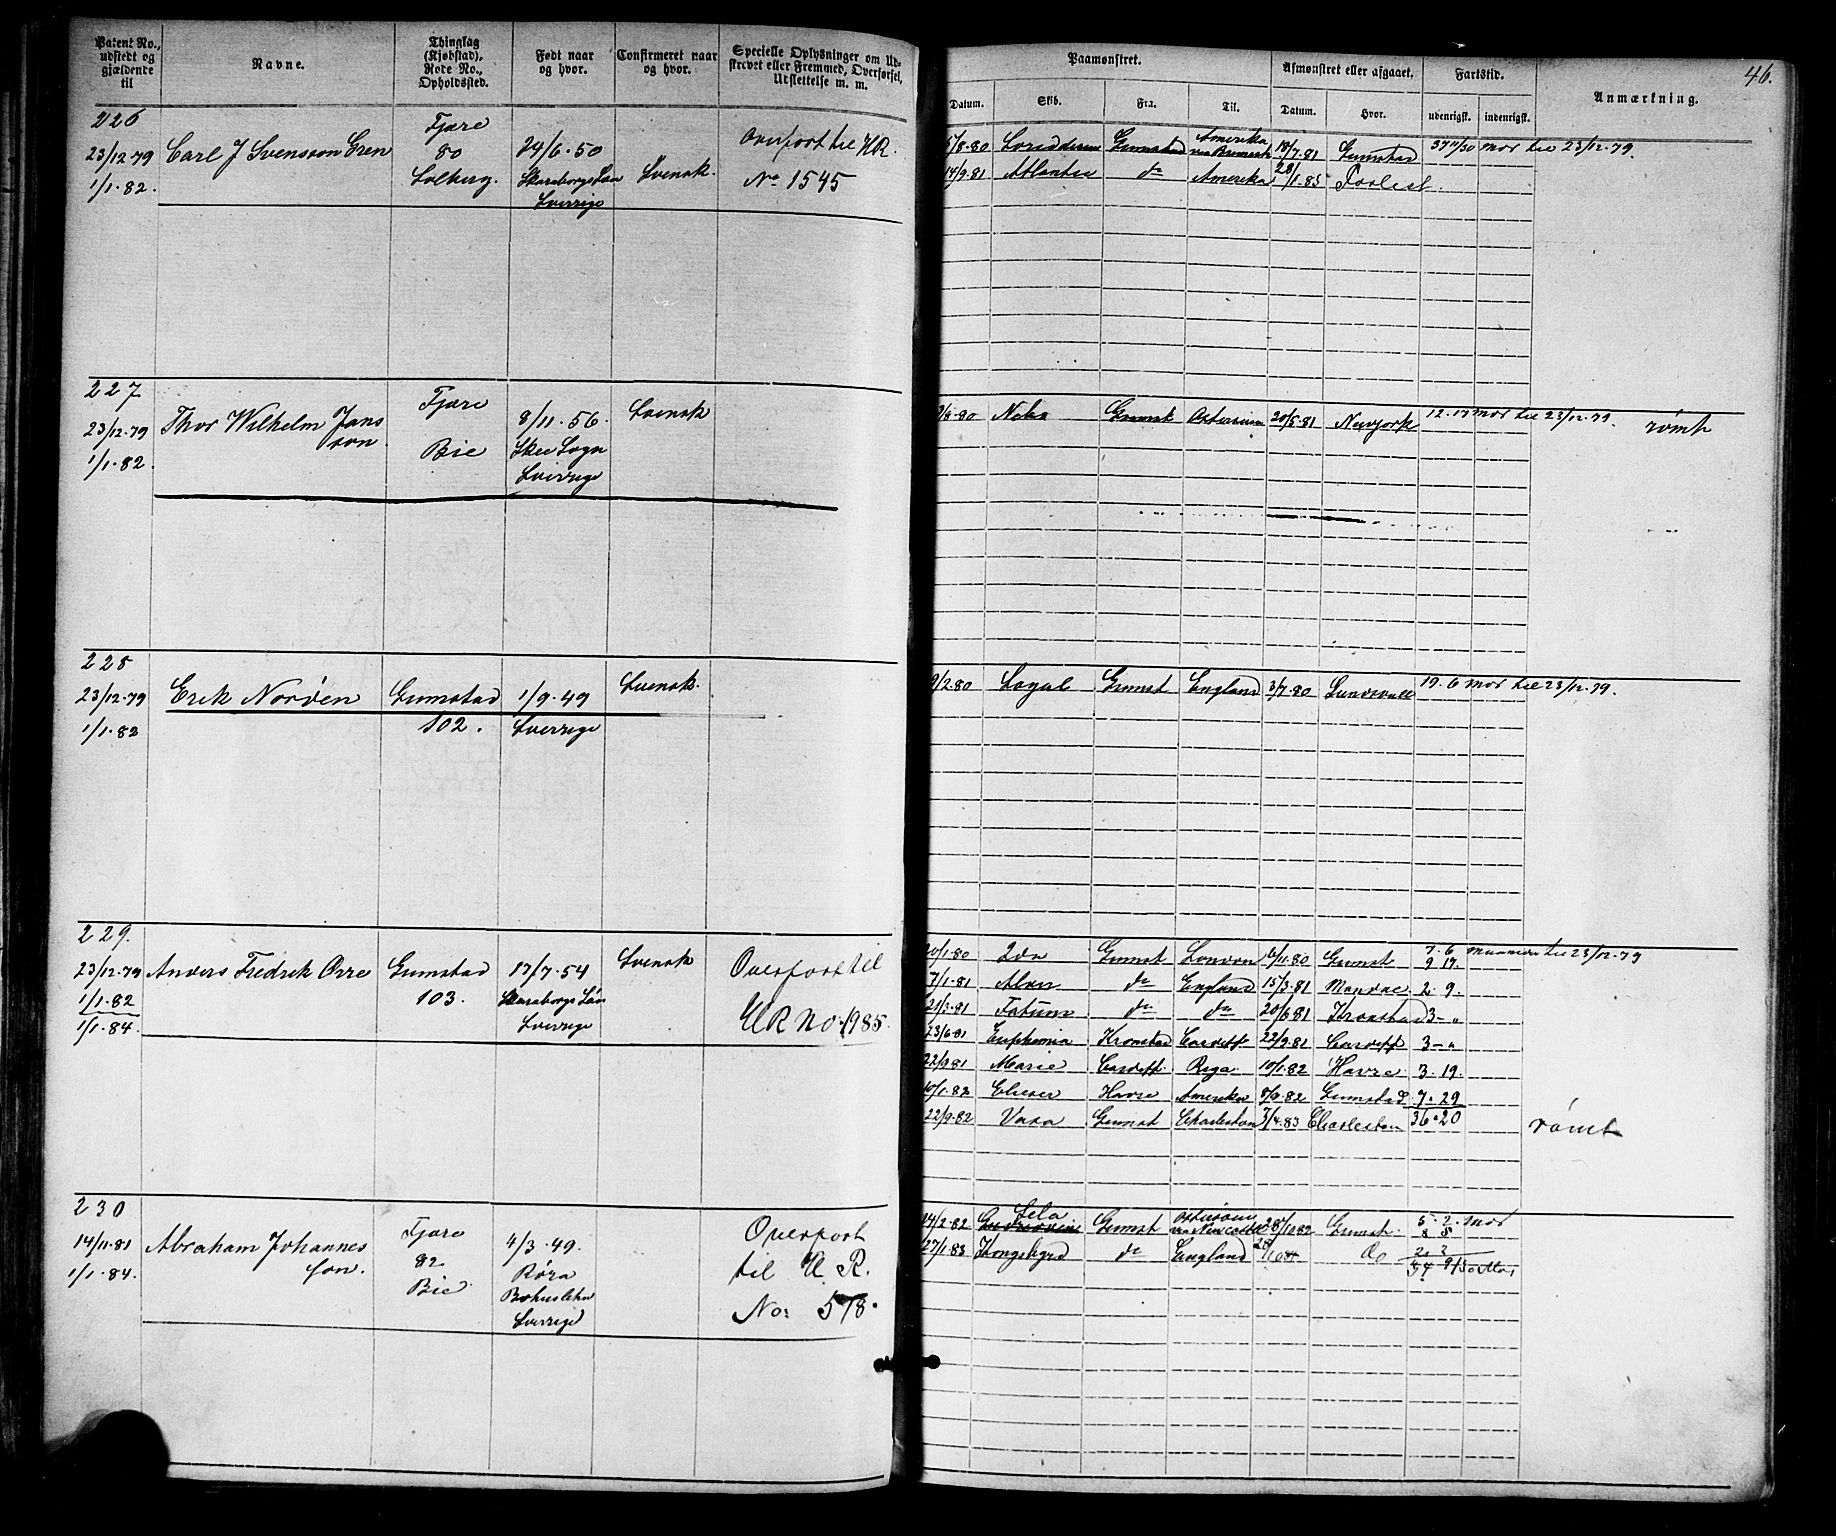 46.
Patent No., udstedt og gjældende til
Navne.
Thinglag (Kjøbstad), Rode No., Opholdssted.
Født naar og hvor.
Confirmeret naar og hvor.
Specielle Oplysninger om Udskrevet eller Fremmed, Overførsel, Udslettelse m. m.
Paamønstret.
Datum.
Skib.
Fra.
Til.
Afmønstret eller afgaaet.
Datum.
Hvor.
Fartstid.
udenrigsk.
indenrigsk.
Anmærkning.
226
23/12-79
1/1-82.
Carl J Svensson Gren
Fjære
80
Solberg.
24/6-50
Skaraborgs Län
Sverrige
Svensk.
Overført til HR.
No 1545
5/8-80 Grimstad Amerika 18/7-81 Grimstad Mod til 23/12-79.
14/9-81 Atlantic do Amerika 28/1-85
227
23/12-79
1/1-82.
Thor Wilhelm Jans
son.
Fjære
Bie
8/11-56.
Skee Sogn
Sverrige
Svensk
/6-80 Grimst 20/5-81 Newyork 12-17 Mod til 23/12-79. rømt
228
23/12-79
1/1-82
Erik Nordén
Grimstad
102.
1/9-49
Sverrige
Svensk.
9/2-80 Loyal Grimst England 3/7-80 Sundsvall 19-6 Mod til 23/12-79.
229.
23/12-79
1/1-82
1/1-84.
Anders Fredrik Orre
Grimstad
103.
17/7-54
Skaraborgs Län
Sverrige
Svensk
Overført til
HR No. 1985.
20/1-80 Ida Grimst London 6/11-80 Grimst 7-6 til 23/12-79
9 17
7/1-81 do England 15/3-81 Mandal 2-9.
21/3-81 Fatum do do 20/6-81 Kronstad 3-"
23/6-81 Euphemia Kronstad Cardiff 22/9-81 Cardiff 3-"
22/9 81 Marie Cardiff. Riga 10/1-82 Havre 3-19.
10/1-82 Elieser Havre Amerika 8/9-82 Grimstad 7-29
22/9-82 Vasa Grimst Charleston 7/4-83 Charleston 36-20 rømt
230
14/11-81
1/1-84.
Abraham Johannes
son.
Fjære
82
Bie
4/3-49.
Röra
Bohuslehn
Sverrige
Overført
til H. R.
No: 578.
14/2-82 Grimst 28/10 82 Grimst. 5-2. Mod
8 8
27/1-83 Kongsbyrd do England do